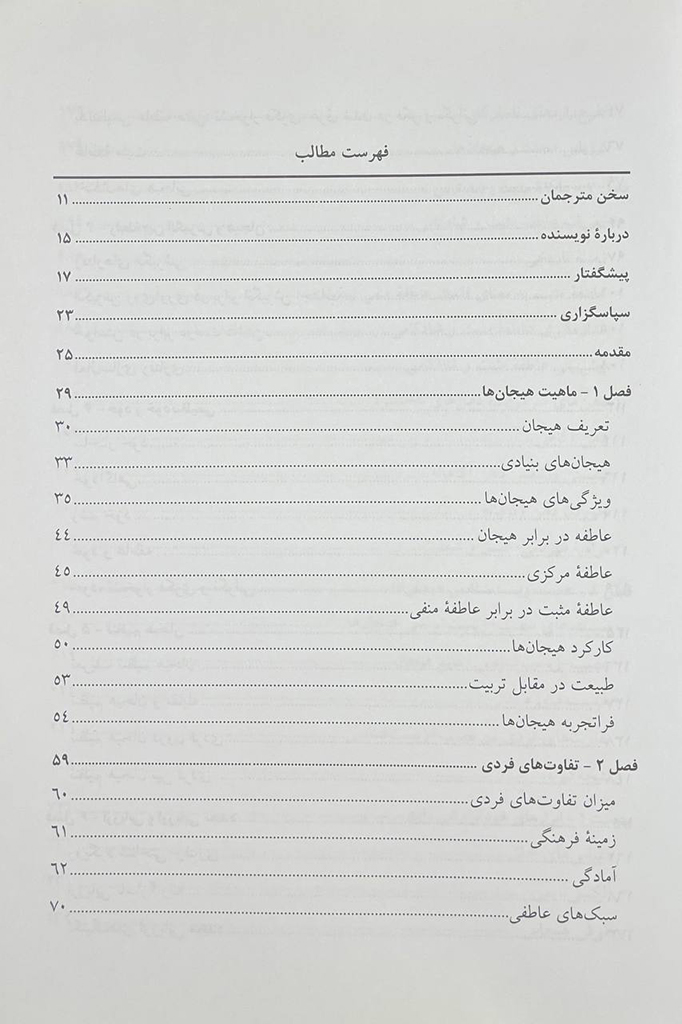 فهرست مطالب
سخن مترجمان ........ ۱۱
دربارهٔ نویسنده ........ ۱۵
پیشگفتار ........ ۱۷
سپاسگزاری ........ ۲۳
مقدمه ........ ۲۵
فصل ۱ - ماهیت هیجان‌ها ........ ۲۹
تعریف هیجان ........ ۳۰
هیجان‌های بنیادی ........ ۳۳
ویژگی‌های هیجان‌ها ........ ۳۵
عاطفه در برابر هیجان ........ ٤٤
عاطفهٔ مرکزی ........ ٤۵
عاطفهٔ مثبت در برابر عاطفهٔ منفی ........ ٤۹
کارکرد هیجان‌ها ........ ۵۰
طبیعت در مقابل تربیت ........ ۵۳
فراتجربه هیجان‌ها ........ ۵٤
فصل ۲ - تفاوت‌های فردی ........ ۵۹
میزان تفاوت‌های فردی ........ ٦۰
زمینهٔ فرهنگی ........ ٦۱
آمادگی ........ ٦۲
سبک‌های عاطفی ........ ۷۰